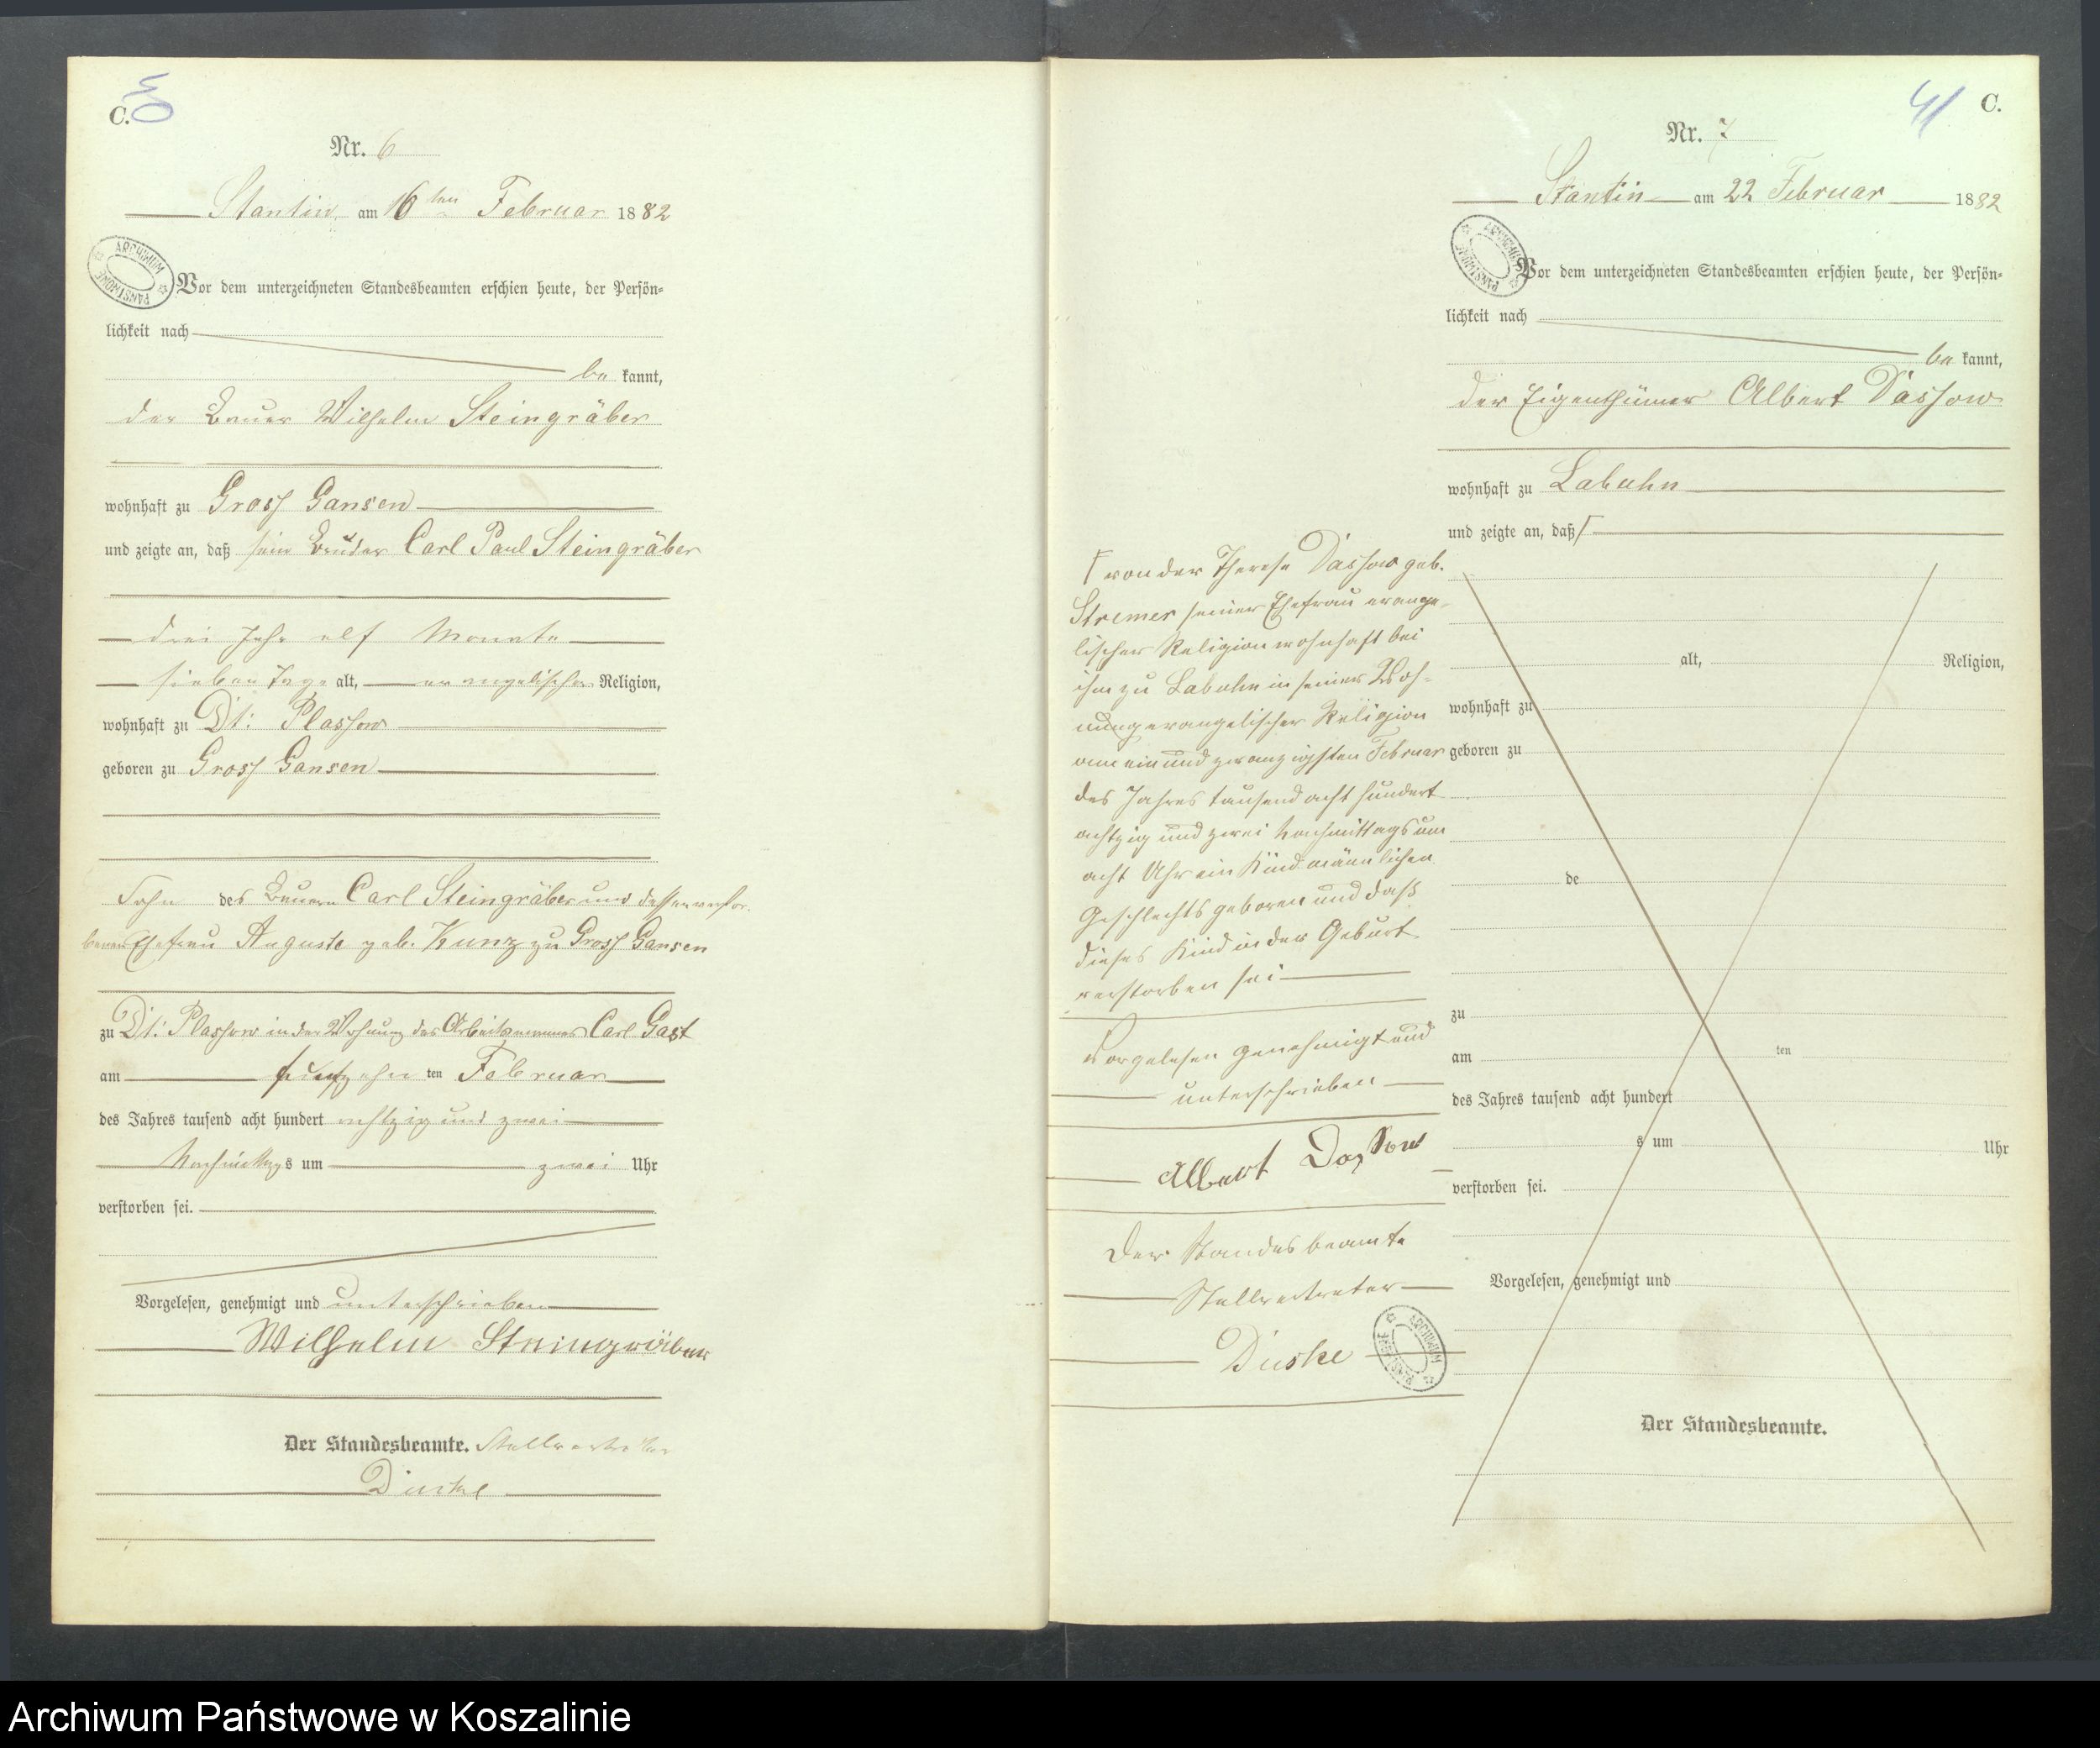 C.
Nr. 6
Stantin, am 16ten Februar 1882
Vor dem unterzeichneten Standesbeamten erschien heute, der Persön-
lichkeit nach
be kannt,
der Bauer Wilhelm Steingräber
wohnhaft zu Gross Gansen
und zeigte an, daß sein Bruder Carl Paul Steingräber
drei Jahr elf Monate
sieben Tage alt, evangelischer Religion,
wohnhaft zu Dt: Plassow
geboren zu Gross Gansen
Sohn des Bauern Carl Steingräber und dessen verstor-
benen Ehefrau Auguste geb. Kunz zu Gross Gansen
zu Dt: Plassow in der Wohnung des Arbeitsmannes Carl Gast
am funfzehn ten Februar
des Jahres tausend acht hundert achtzig und zwei
Nachmittags um zwei Uhr
verstorben sei.
Vorgelesen, genehmigt und unterschrieben
Wilhelm Steingräber
Der Standesbeamte. Stellvertreter
Duske
41 C.
Nr. 7
Stantin am 22 Februar 1882
Vor dem unterzeichneten Standesbeamten erschien heute, der Persön-
lichkeit nach
be kannt,
der Eigenthümer Albert Dassow
wohnhaft zu Labuhn
und zeigte an, daß
von der Therese Dassow geb.
Stremer seiner Ehefrau evange-
lischer Religion wohnhaft bei
ihm zu Labuhn in seiner Woh-
nung evangelischer Religion
am ein und zwanzigsten Februar
des Jahres tausend acht hundert
achtzig und zwei Nachmittags um
acht Uhr ein Kind männlichen
Geschlechts geboren und daß
dieses Kind in der Geburt
verstorben sei
Vorgelesen genehmigt und
unterschrieben
Albert Dassow
Der Standesbeamte
Stellvertreter
Duske
alt, Religion,
wohnhaft zu
geboren zu
de
zu
am ten
des Jahres tausend acht hundert
s um Uhr
verstorben sei.
Vorgelesen, genehmigt und
Der Standesbeamte.
ARCHIWUM PAŃSTWOWE
Archiwum Państwowe w Koszalinie